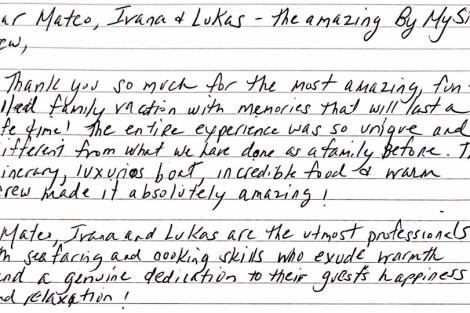 ar Mateo, Ivana & Lukas - the amazing By My Si
ew,
Thank you so much for the most amazing, fun-
lled family vacation with memories that will last a
fe time! The entire experience was so unique and
ifferent from what we have done as a family before. T
inerary, luxurios boat, incredible food & warm
rew made it absolutely amazing!
Mateo, Ivana and Lukas are the utmost professionals
th seafaring and cooking skills who exude warmth
nd a genuine dedication to their guests happiness
nd relaxation!